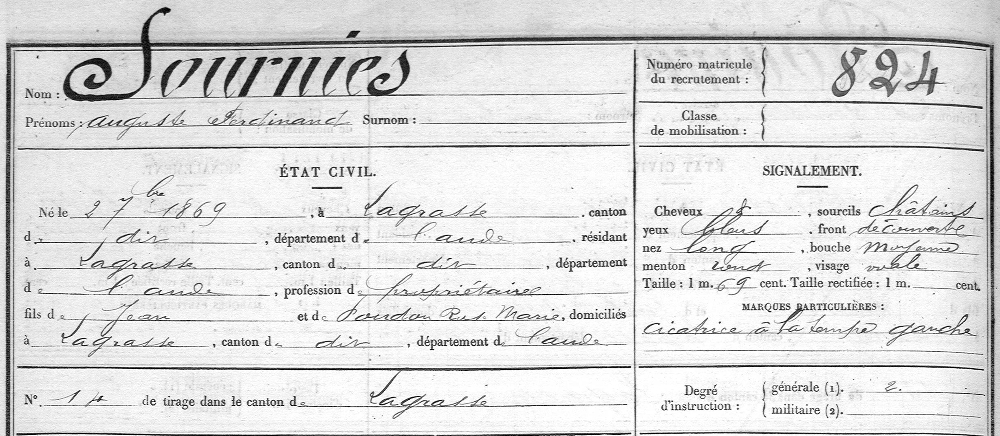 Nom : Sournies
Prénoms : Auguste Ferdinand Surnom :
ÉTAT CIVIL.
Né le 2 7bre 1869, à Lagrasse, canton
d dit, département de l'aude, résidant
à Lagrasse, canton de dit, département
de l'aude, profession de propriétaire
fils de Jean et de Marie, domiciliés
à Lagrasse, canton de dit, département de l'aude
N° 14 de tirage dans le canton de Lagrasse
Numéro matricule
du recrutement : 824
Classe
de mobilisation :
SIGNALEMENT.
Cheveux &, sourcils châtains
yeux bleus, front découvert
nez long, bouche moyenne
menton rond, visage ovale
Taille : 1 m. 69 cent. Taille rectifiée : 1 m. cent.
MARQUES PARTICULIÈRES :
cicatrice à la tempe gauche
Degré
d'instruction :
générale (1). 2.
militaire (2).